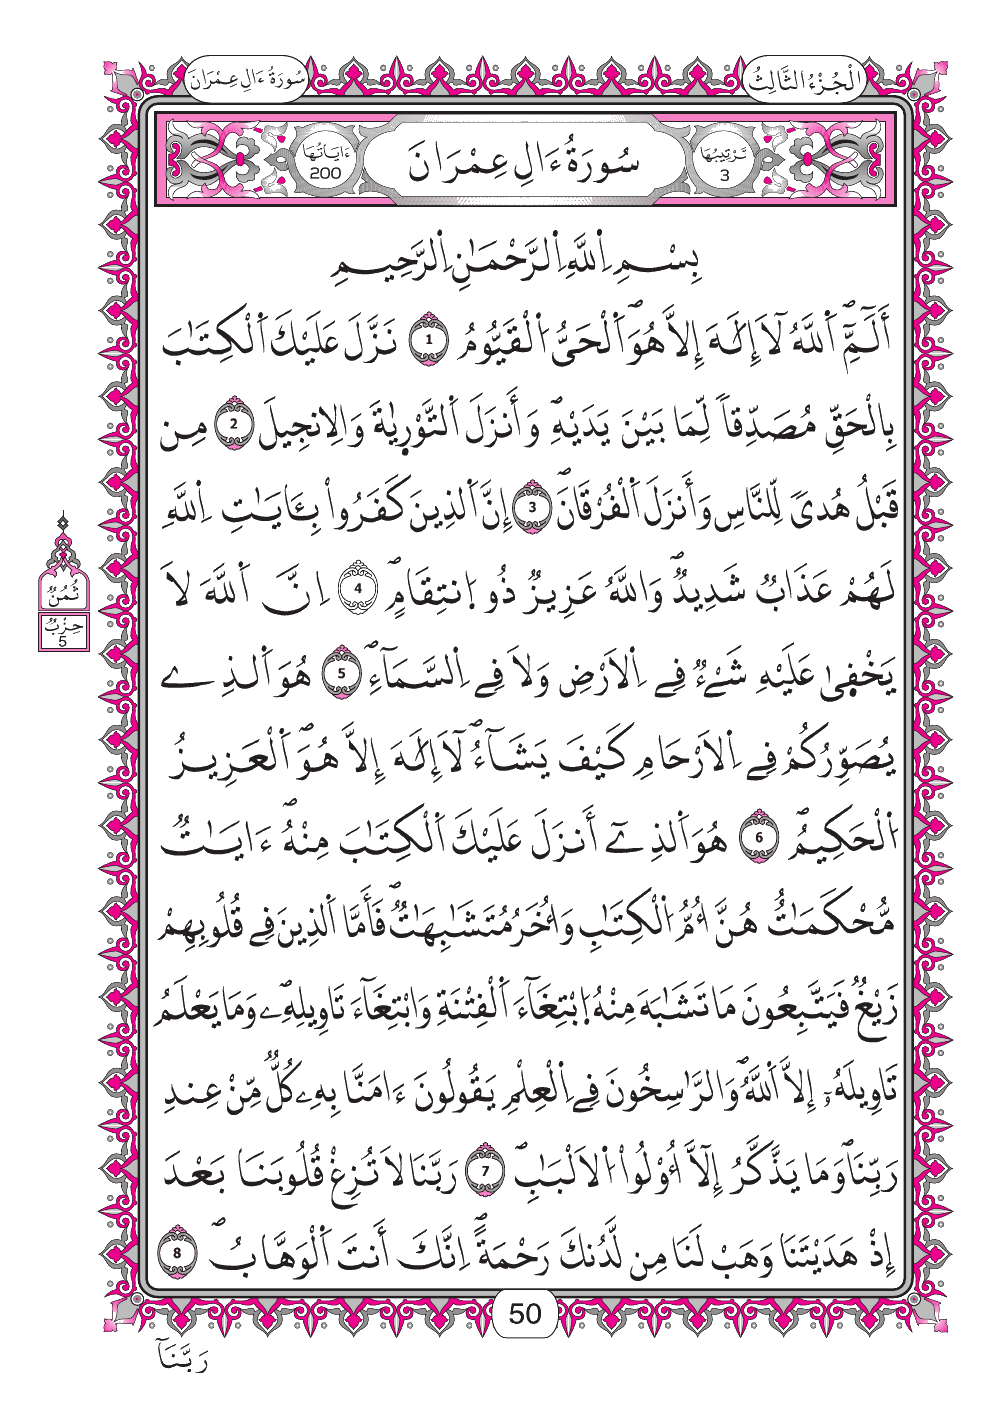 سُورَةُ ءَالِ عِمْرَانَ
الْجُزْءُ الثَّالِثُ
تَرْتِيبُهَا
3
سُورَةُ ءَالِ عِمْرَانَ
ءَايَاتُهَا
200
بِسْمِ اِ۬للَّهِ اِ۬لرَّحْمَٰنِ اِ۬لرَّحِيمِ
أَلَٓمِّٓۖ اَ۬للَّهُ لَآ إِلَٰهَ إِلَّا هُوَۖ اَ۬لْحَىُّ اُ۬لْقَيُّومُ 1 نَزَّلَ عَلَيْكَ اَ۬لْكِتَٰبَ
بِالْحَقِّ مُصَدِّقاٗ لِّمَا بَيْنَ يَدَيْهِۖ وَأَنزَلَ اَ۬لتَّوْر۪يٰةَ وَالِانجِيلَ 2 مِن
قَبْلُ هُدىٗ لِّلنَّاسِ وَأَنزَلَ اَ۬لْفُرْقَانَۖ 3 إِنَّ اَ۬لذِينَ كَفَرُواْ بِـَٔايَٰتِ اِ۬للَّهِ
لَهُمْ عَذَابٞ شَدِيدٞۖ وَاللَّهُ عَزِيزٞ ذُو اُ۪نتِقَامٍۖ 4 اِنَّ اَ۬للَّهَ لَا
يَخْف۪يٰ عَلَيْهِ شَےْءٞ فِے اِ۬لَارْضِ وَلَا فِے اِ۬لسَّمَآءِۖ 5 هُوَ اَ۬لذِے
يُصَوِّرُكُمْ فِے اِ۬لَارْحَامِ كَيْفَ يَشَآءُۖ لَآ إِلَٰهَ إِلَّا هُوَۖ اَ۬لْعَزِيزُ
اُ۬لْحَكِيمُۖ 6 هُوَ اَ۬لذِےٓ أَنزَلَ عَلَيْكَ اَ۬لْكِتَٰبَ مِنْهُۖ ءَايَٰتٞ
مُّحْكَمَٰتٌ هُنَّ أُمُّ اُ۬لْكِتَٰبِ وَأُخَرُ مُتَشَٰبِهَٰتٞۖ فَأَمَّا اَ۬لذِينَ فِے قُلُوبِهِمْ
زَيْغٞ فَيَتَّبِعُونَ مَا تَشَٰبَهَ مِنْهُ اُ۪بْتِغَآءَ اَ۬لْفِتْنَةِ وَابْتِغَآءَ تَاوِيلِهِۦۖ وَمَا يَعْلَمُ
تَاوِيلَهُۥٓ إِلَّا اَ۬للَّهُۖ وَالرَّاسِخُونَ فِے اِ۬لْعِلْمِ يَقُولُونَ ءَامَنَّا بِهِۦ كُلّٞ مِّنْ عِندِ
رَبِّنَاۖ وَمَا يَذَّكَّرُ إِلَّآ أُوْلُواْ اُ۬لَالْبَٰبِۖ 7 رَبَّنَا لَا تُزِغْ قُلُوبَنَا بَعْدَ
إِذْ هَدَيْتَنَا وَهَبْ لَنَا مِن لَّدُنكَ رَحْمَةًۖ اِنَّكَ أَنتَ اَ۬لْوَهَّابُۖ 8
ثُمُنُ
حِزْبٌ
5
50
رَبَّنَآ